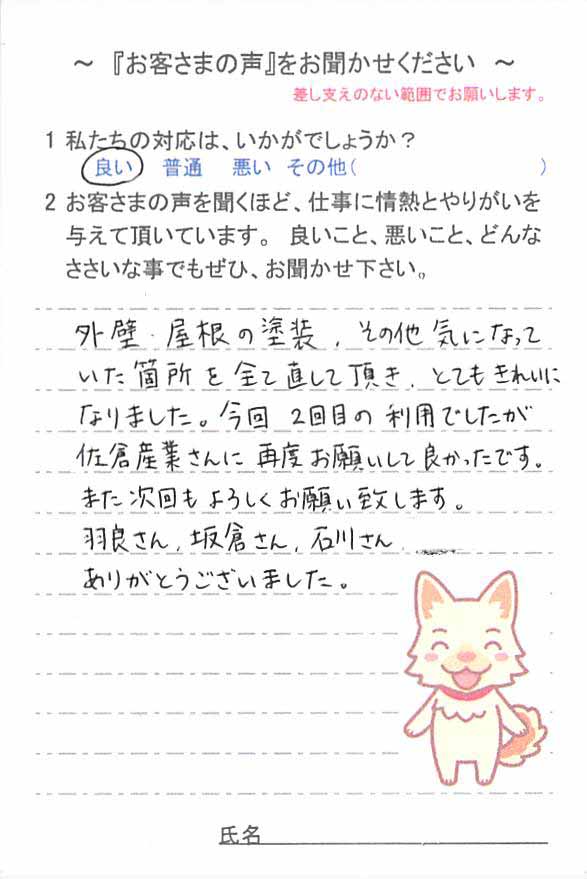 ～ 『お客さまの声』をお聞かせください ～
差し支えのない範囲でお願いします。
1 私たちの対応は、いかがでしょうか？
良い 普通 悪い その他( )
2 お客さまの声を聞くほど、仕事に情熱とやりがいを
与えて頂いています。 良いこと、悪いこと、どんな
ささいな事でもぜひ、お聞かせ下さい。
外壁・屋根の塗装、その他気になって
いた箇所を全て直して頂き、とてもきれいに
なりました。今回 2回目の利用でしたが
佐倉産業さんに再度お願いして良かったです。
また次回もよろしくお願い致します。
羽良さん、坂倉さん、石川さん
ありがとうございました。
氏名